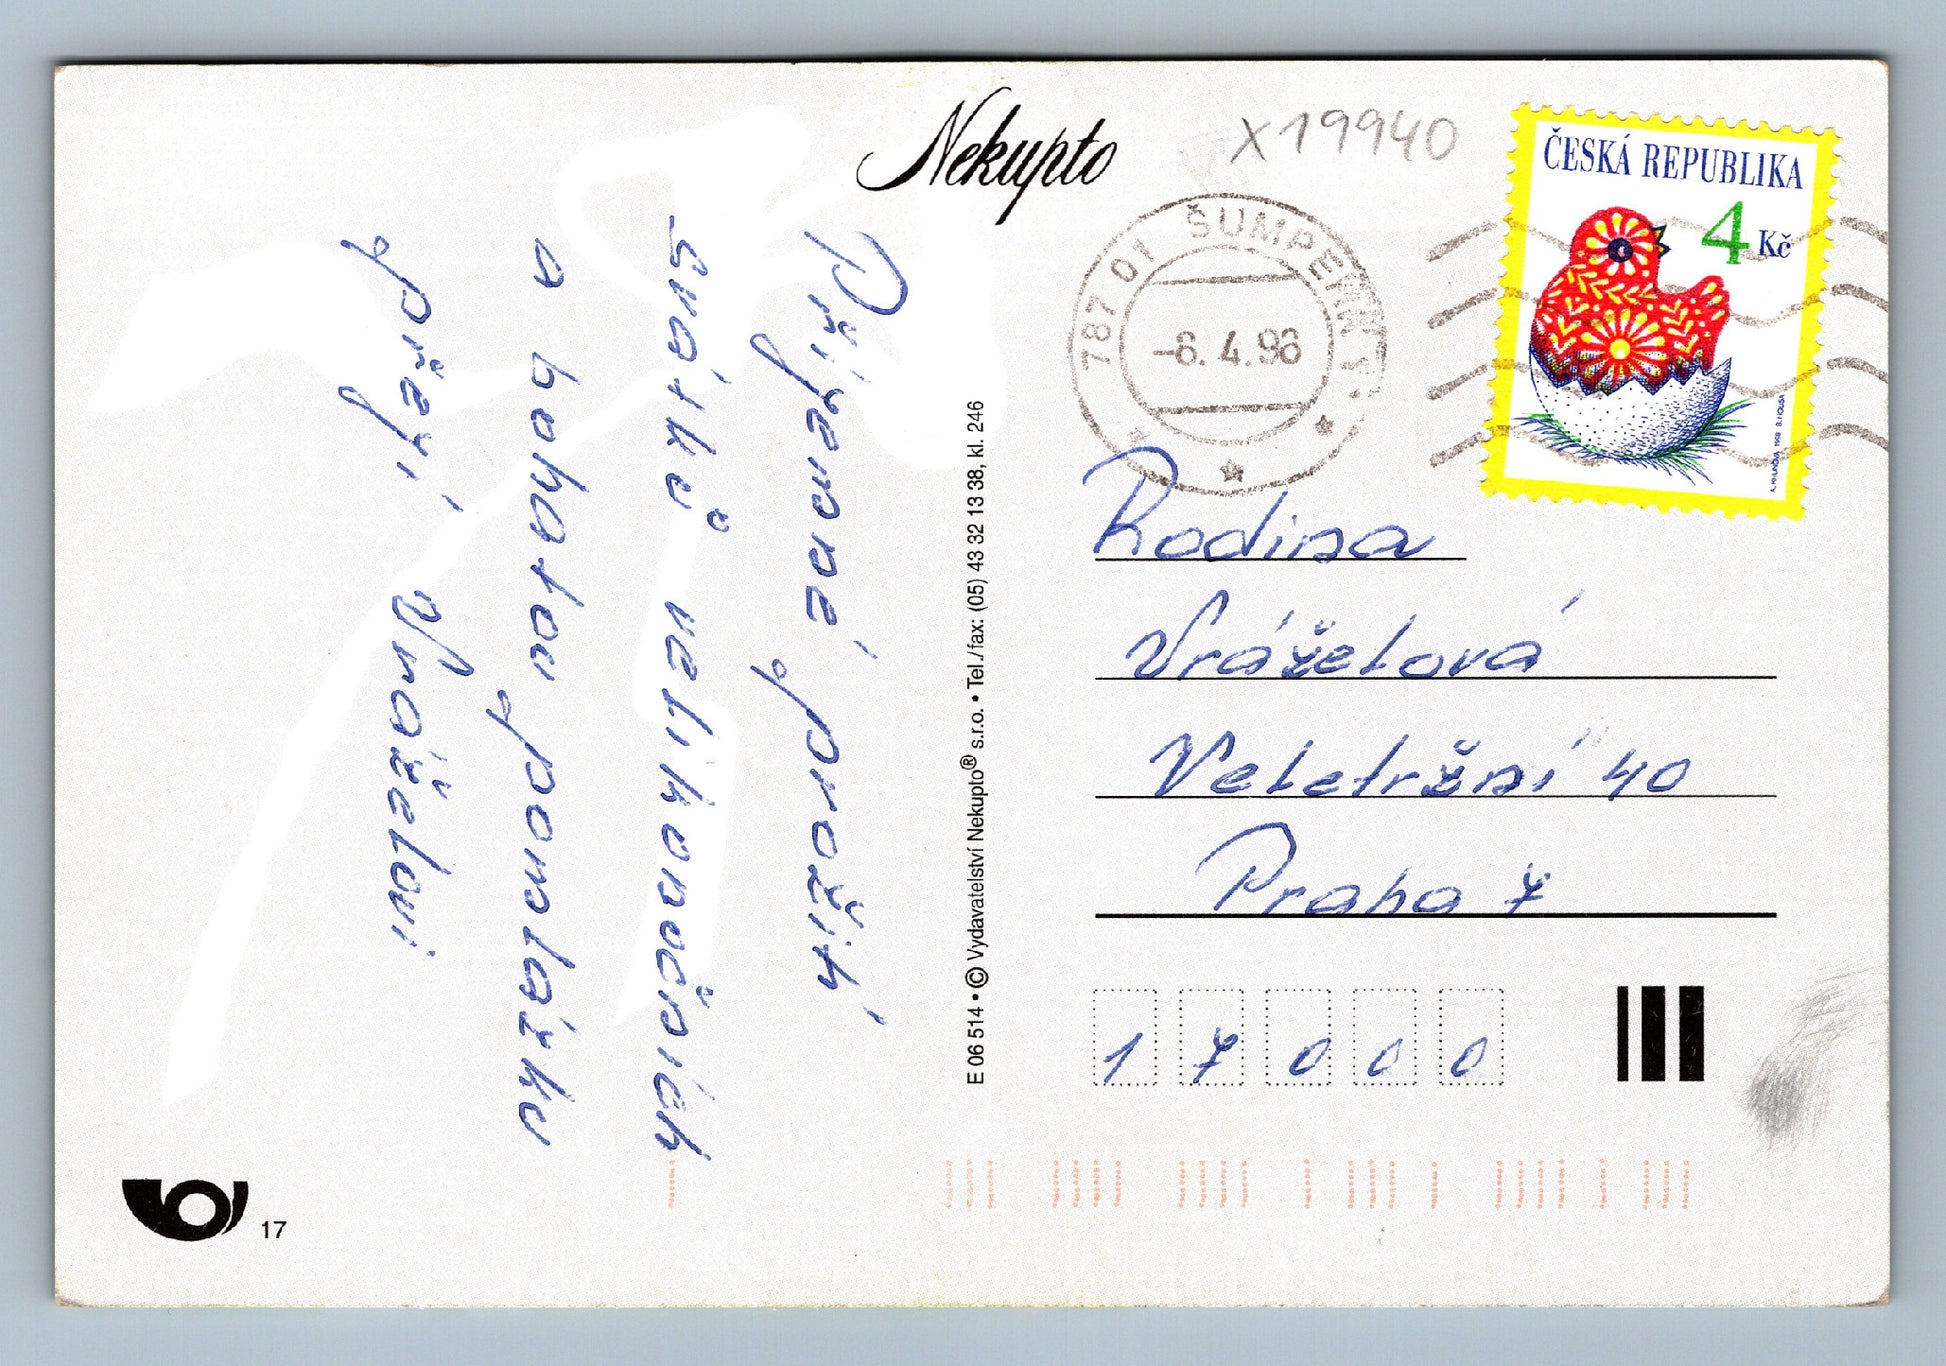 Nekupto
x19940
ČESKÁ REPUBLIKA
4 Kč
A. KHUNOVÁ 1998 B. HOUSA
787 01 ŠUMPERK 1
-6. 4. 98
Příjemné prožití
svátků velikonočních
a bohatou pomlázku
přejí Vráželovi
E 06 514 • © Vydavatelství Nekupto® s.r.o. • Tel./fax: (05) 43 32 13 38, kl. 246
Rodina
Vráželová
Veletržní 40
Praha 7
17000
17